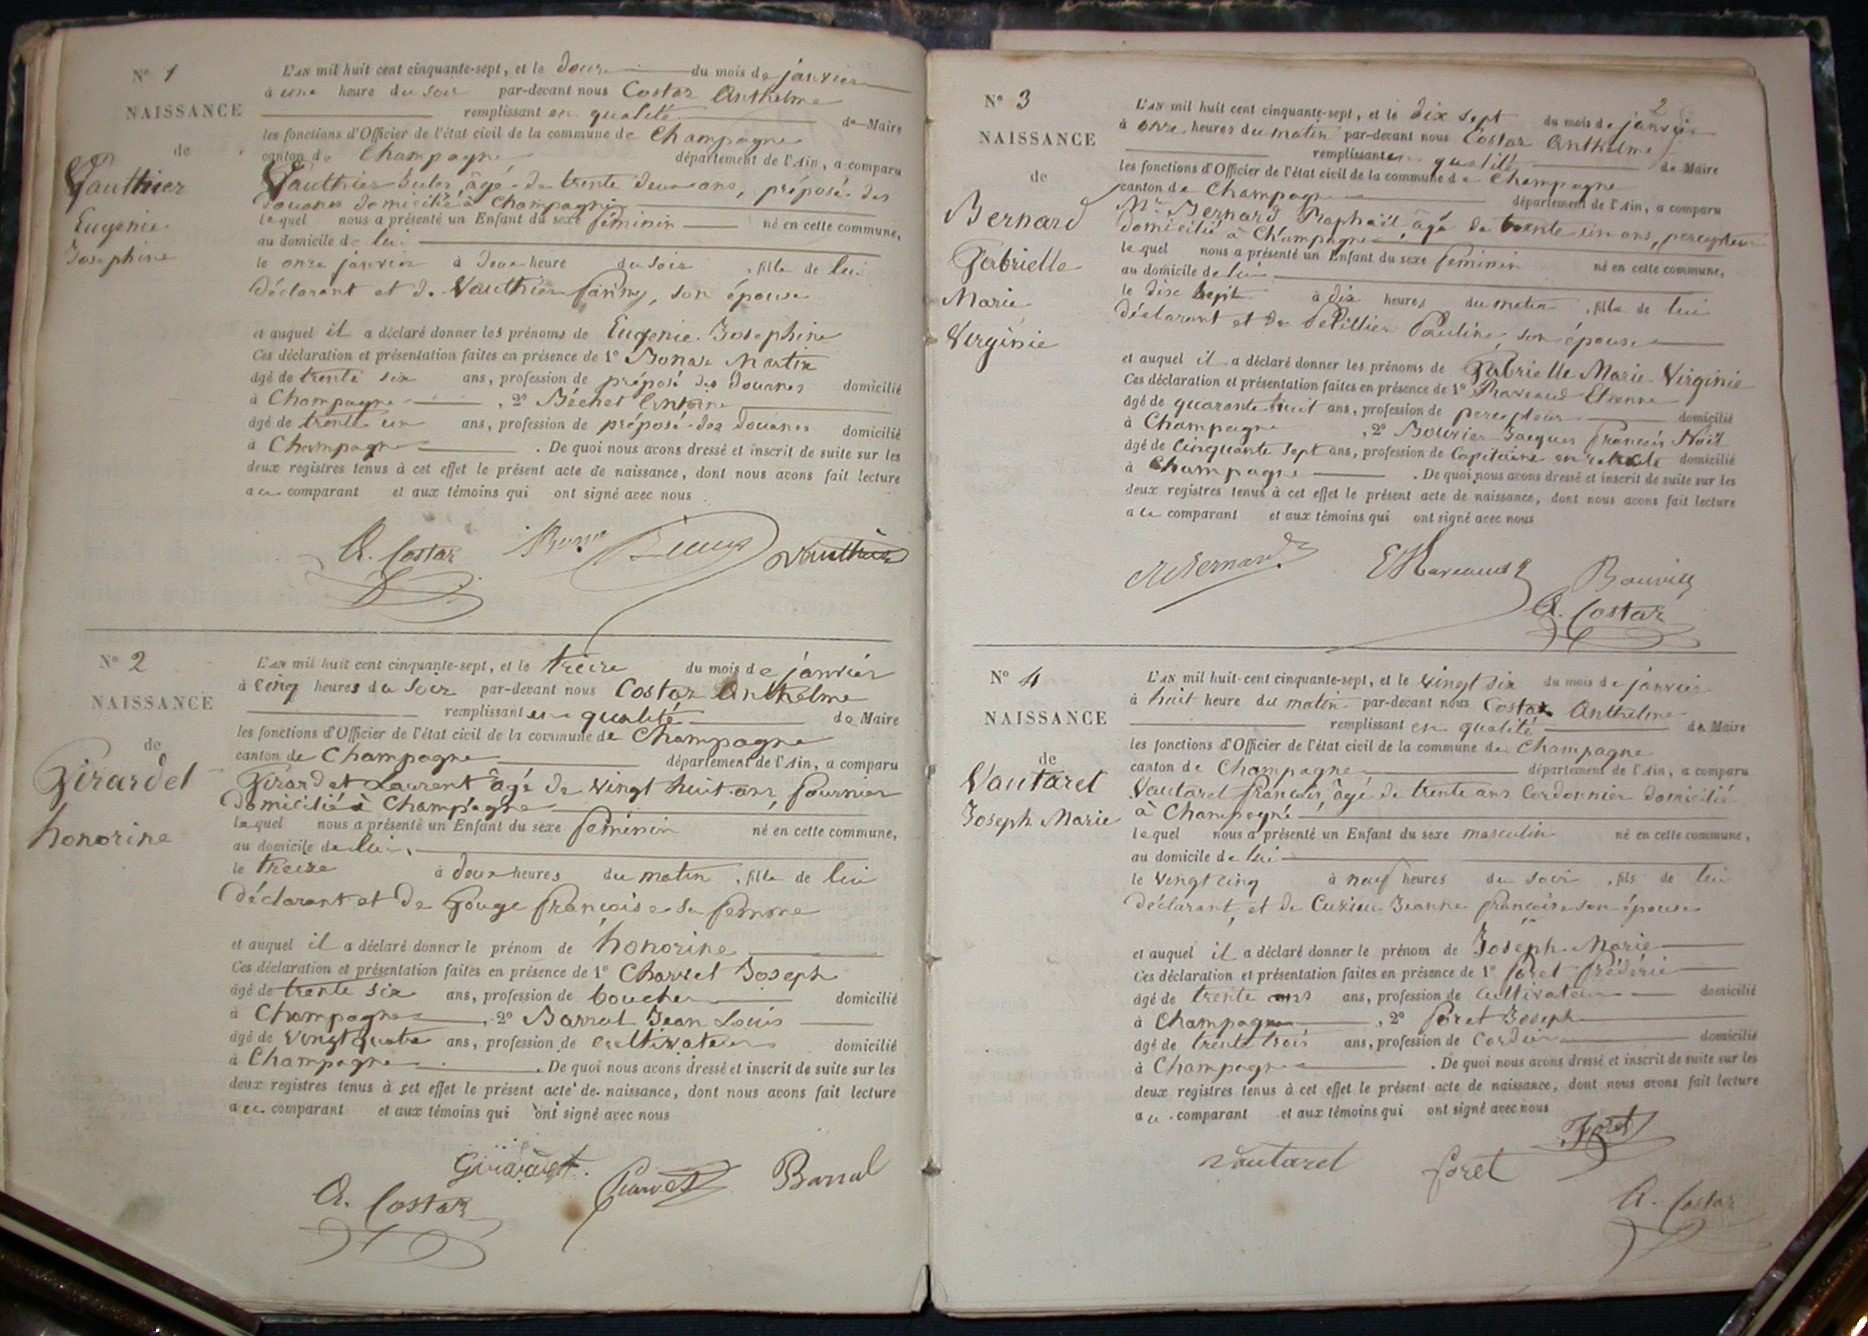 N° 1
NAISSANCE
de
Vauthier
Eugénie
Josephine
L'AN mil huit cent cinquante-sept, et le douze du mois de janvier
à une heure du soir par-devant nous Costaz Anthelme
remplissant en qualité de Maire
les fonctions d'Officier de l'état civil de la commune de Champagne
canton de Champagne département de l'Ain, a comparu
Vauthier âgé de trente deux ans, préposé des
douanes domicilié à Champagne
lequel nous a présenté un Enfant du sexe féminin né en cette commune,
au domicile de lui
le onze janvier à deux heure du soir, fille de lui
déclarant et de Vauthier fanny, son épouse
et auquel il a déclaré donner les prénoms de Eugenie Josephine
Ces déclaration et présentation faites en présence de 1° Bonaz Martin
âgé de trente six ans, profession de préposé des douanes domicilié
à Champagne, 2° Béchet Antoine
âgé de trente un ans, profession de préposé des douanes domicilié
à Champagne. De quoi nous avons dressé et inscrit de suite sur les
deux registres tenus à cet effet le présent acte de naissance, dont nous avons fait lecture
a ce comparant et aux témoins qui ont signé avec nous
A. Costaz Vauthier
N° 2
NAISSANCE
de
Girardet
honorine
L'AN mil huit cent cinquante-sept, et le treize du mois de janvier
à cinq heures du soir par-devant nous Costaz Anthelme
remplissant en qualité de Maire
les fonctions d'Officier de l'état civil de la commune de Champagne
canton de Champagne département de l'Ain, a comparu
Girardet Laurent âgé de vingt huit ans, fournier
domicilié à Champagne
lequel nous a présenté un Enfant du sexe féminin né en cette commune,
au domicile de lui,
le treize à deux heures du matin, fille de lui
déclarant et de Gouge françoise sa femme
et auquel il a déclaré donner le prénom de honorine
Ces déclaration et présentation faites en présence de 1° Charvet Joseph
âgé de trente six ans, profession de boucher domicilié
à Champagne, 2° Barral Jean Louis
âgé de vingt quatre ans, profession de cultivateur domicilié
à Champagne. De quoi nous avons dressé et inscrit de suite sur les
deux registres tenus à cet effet le présent acte de naissance, dont nous avons fait lecture
a ce comparant et aux témoins qui ont signé avec nous
Girardet. Charvet Barral
A. Costaz
2
N° 3
NAISSANCE
de
Bernard
Gabrielle
Marie
Virginie
L'AN mil huit cent cinquante-sept, et le dix sept du mois de janvier
à onze heures du matin par-devant nous Costaz Anthelme
remplissant en qualité de Maire
les fonctions d'Officier de l'état civil de la commune de Champagne
canton de Champagne département de l'Ain, a comparu
Mr Bernard Raphaël, âgé de trente un ans, percepteur
domicilié à Champagne
lequel nous a présenté un Enfant du sexe féminin né en cette commune,
au domicile de lui
le dix sept à dix heures du matin, fille de lui
déclarant et de Pauline, son épouse
et auquel il a déclaré donner les prénoms de Gabrielle Marie Virginie
Ces déclaration et présentation faites en présence de 1° Raveaud Etienne
âgé de quarante huit ans, profession de percepteur domicilié
à Champagne, 2° Bouvier Jacques François Noël
âgé de cinquante sept ans, profession de Capitaine en retraite domicilié
à Champagne. De quoi nous avons dressé et inscrit de suite sur les
deux registres tenus à cet effet le présent acte de naissance, dont nous avons fait lecture
a ce comparant et aux témoins qui ont signé avec nous
Bernard E Raveaud Bouvier
A. Costaz
N° 4
NAISSANCE
de
Vautaret
Joseph Marie
L'AN mil huit cent cinquante-sept, et le vingt six du mois de janvier
à huit heure du matin par-devant nous Costaz Anthelme
remplissant en qualité de Maire
les fonctions d'Officier de l'état civil de la commune de Champagne
canton de Champagne département de l'Ain, a comparu
Vautaret françois, âgé de trente ans Cordonnier domicilié
à Champagne
lequel nous a présenté un Enfant du sexe masculin né en cette commune,
au domicile de lui
le vingt cinq à neuf heures du soir, fils de lui
déclarant, et de Jeanne françoise son épouse
et auquel il a déclaré donner le prénom de Joseph Marie
Ces déclaration et présentation faites en présence de 1° foret frédéric
âgé de trente ans ans, profession de cultivateur domicilié
à Champagne, 2° foret Joseph
âgé de trente trois ans, profession de Cordier domicilié
à Champagne. De quoi nous avons dressé et inscrit de suite sur les
deux registres tenus à cet effet le présent acte de naissance, dont nous avons fait lecture
a ce comparant et aux témoins qui ont signé avec nous
Vautaret foret Foret
A. Costaz